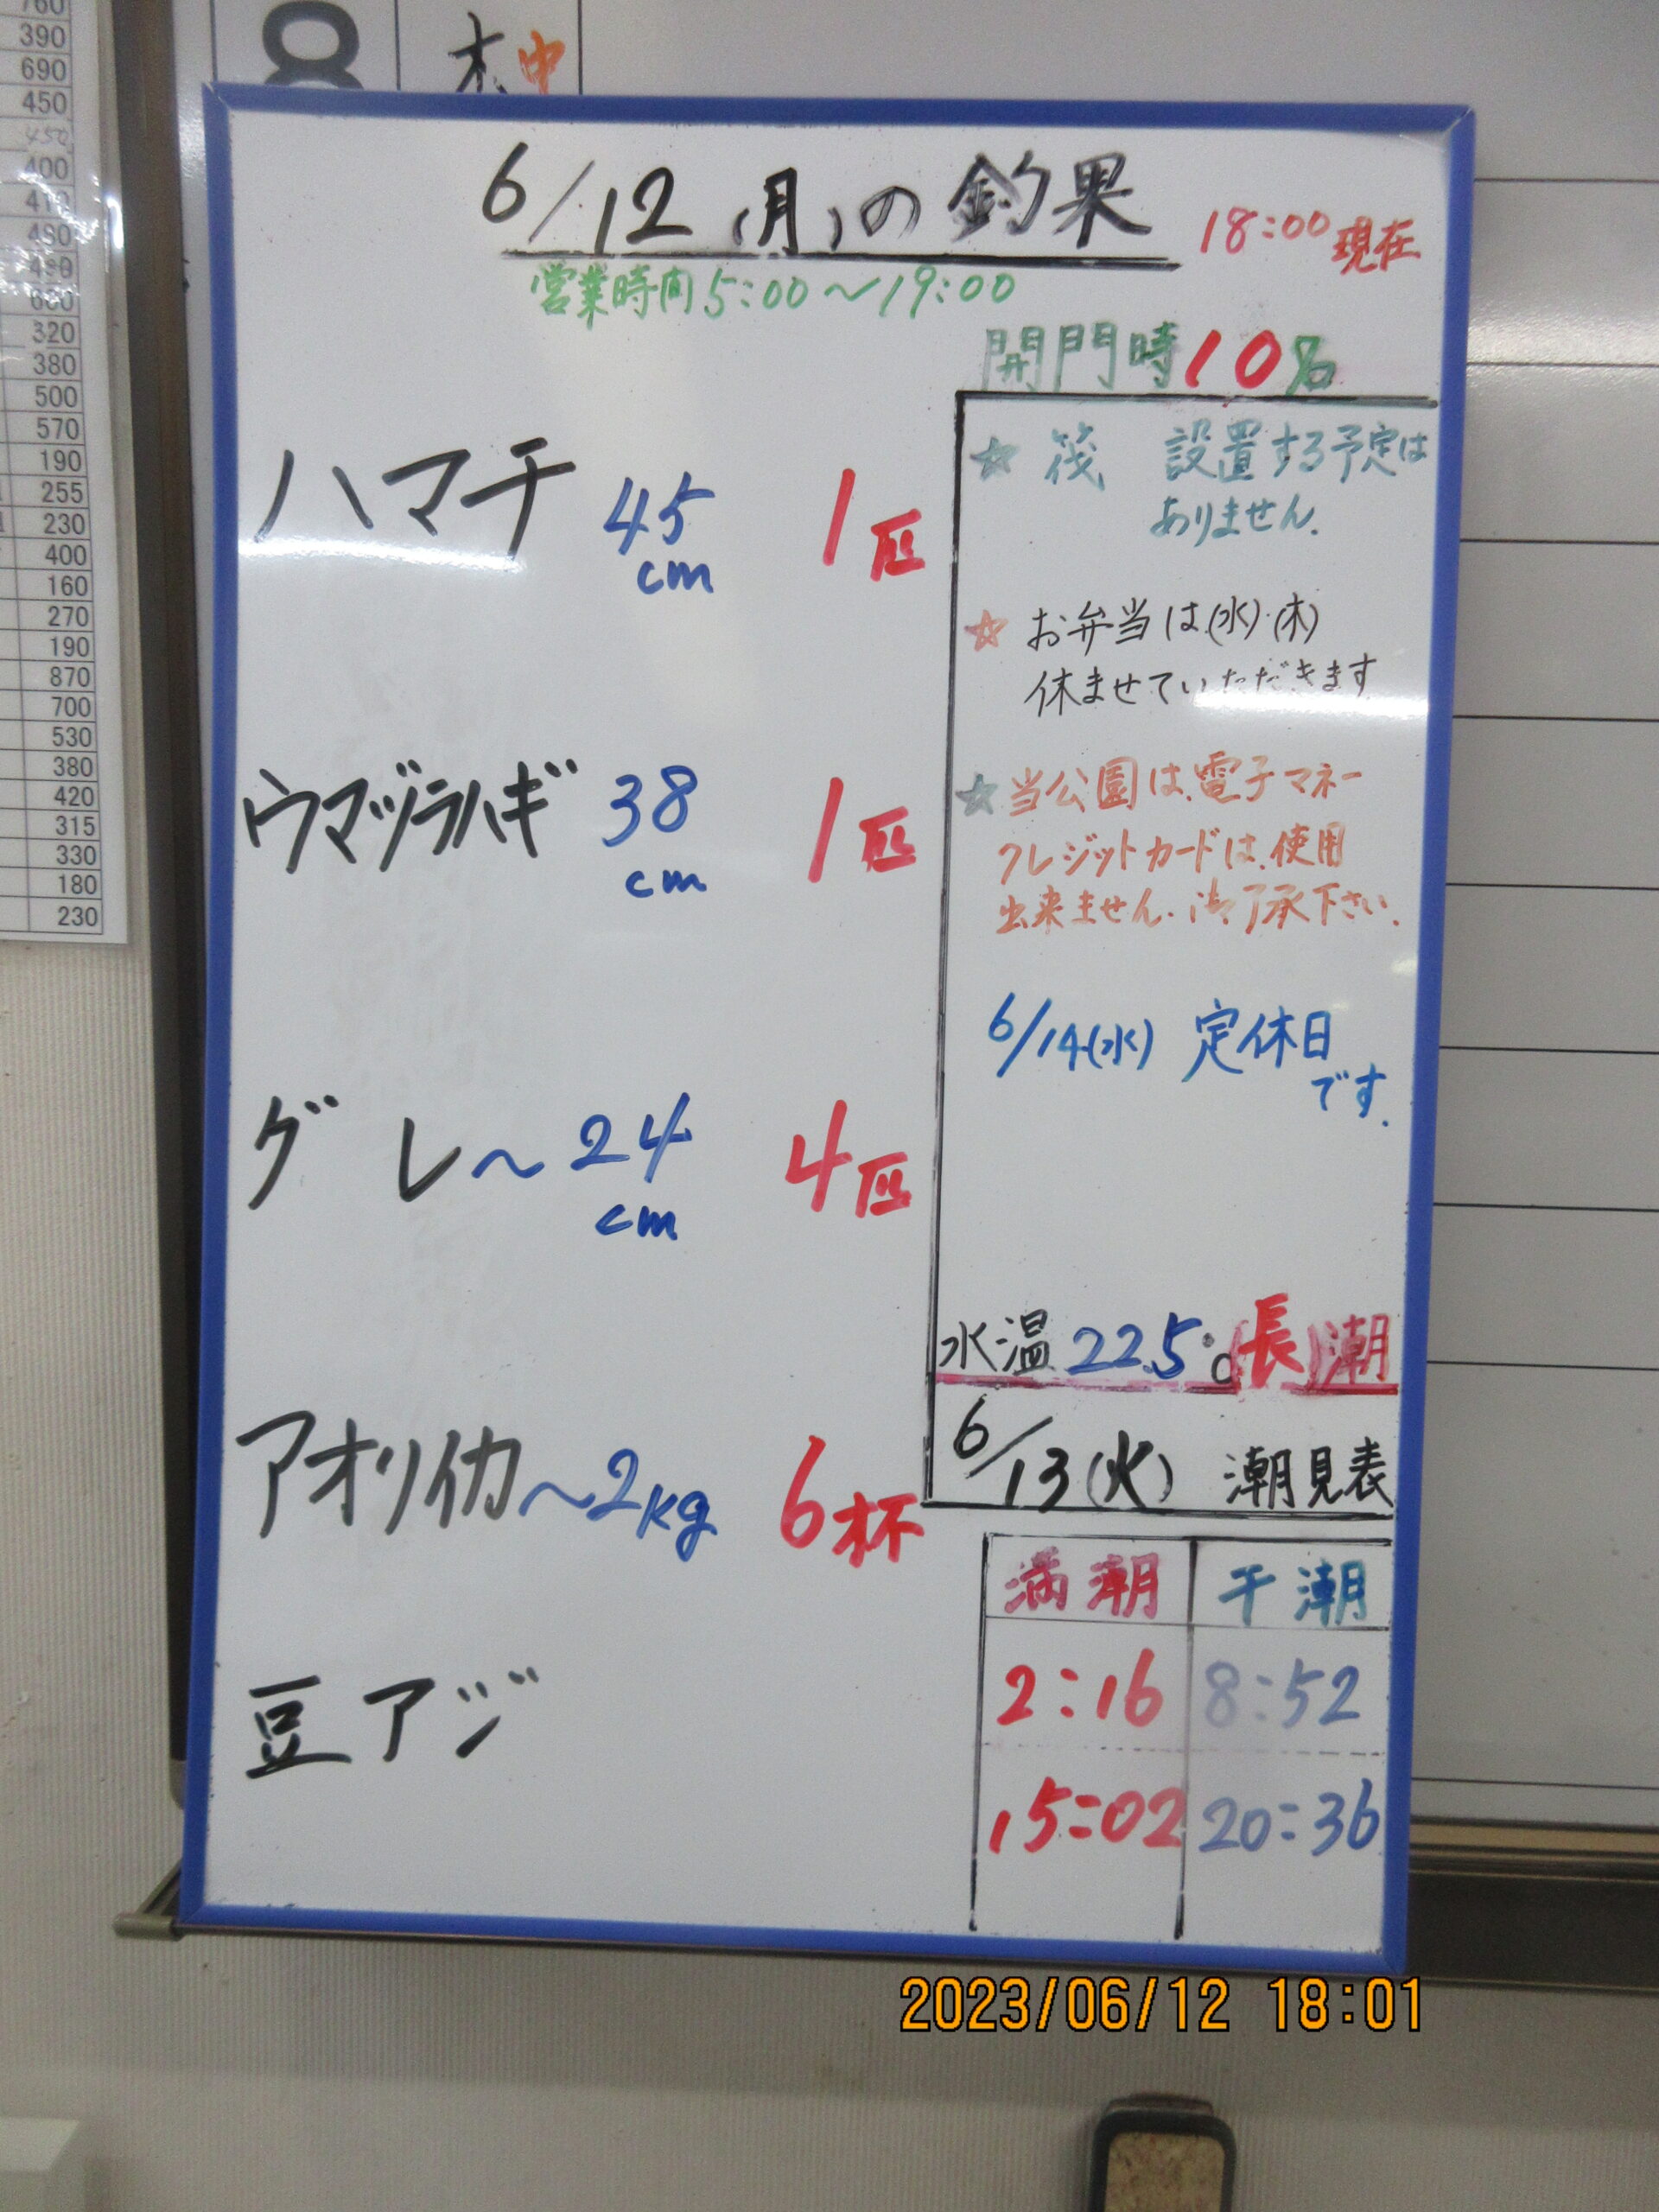 390
690
450
450
400
木 中
6/12(月)の釣果
18:00現在
営業時間5:00〜19:00
開門時10名
ハマチ 45cm 1匹
ウマヅラハギ 38cm 1匹
グレ〜24cm 4匹
アオリイカ〜2kg 6杯
豆アジ
☆ 筏 設置する予定は
ありません.
☆ お弁当は(水)・(木)
休ませていただきます
☆当公園は、電子マネー
クレジットカードは、使用
出来ません. 御了承下さい.
6/14(水) 定休日
です.
水温22.5℃(長)潮
6/13(火) 潮見表
満潮 干潮
2:16 8:52
15:02 20:36
320
380
500
570
190
255
230
400
160
270
190
870
700
530
380
420
315
330
180
230
2023/06/12 18:01